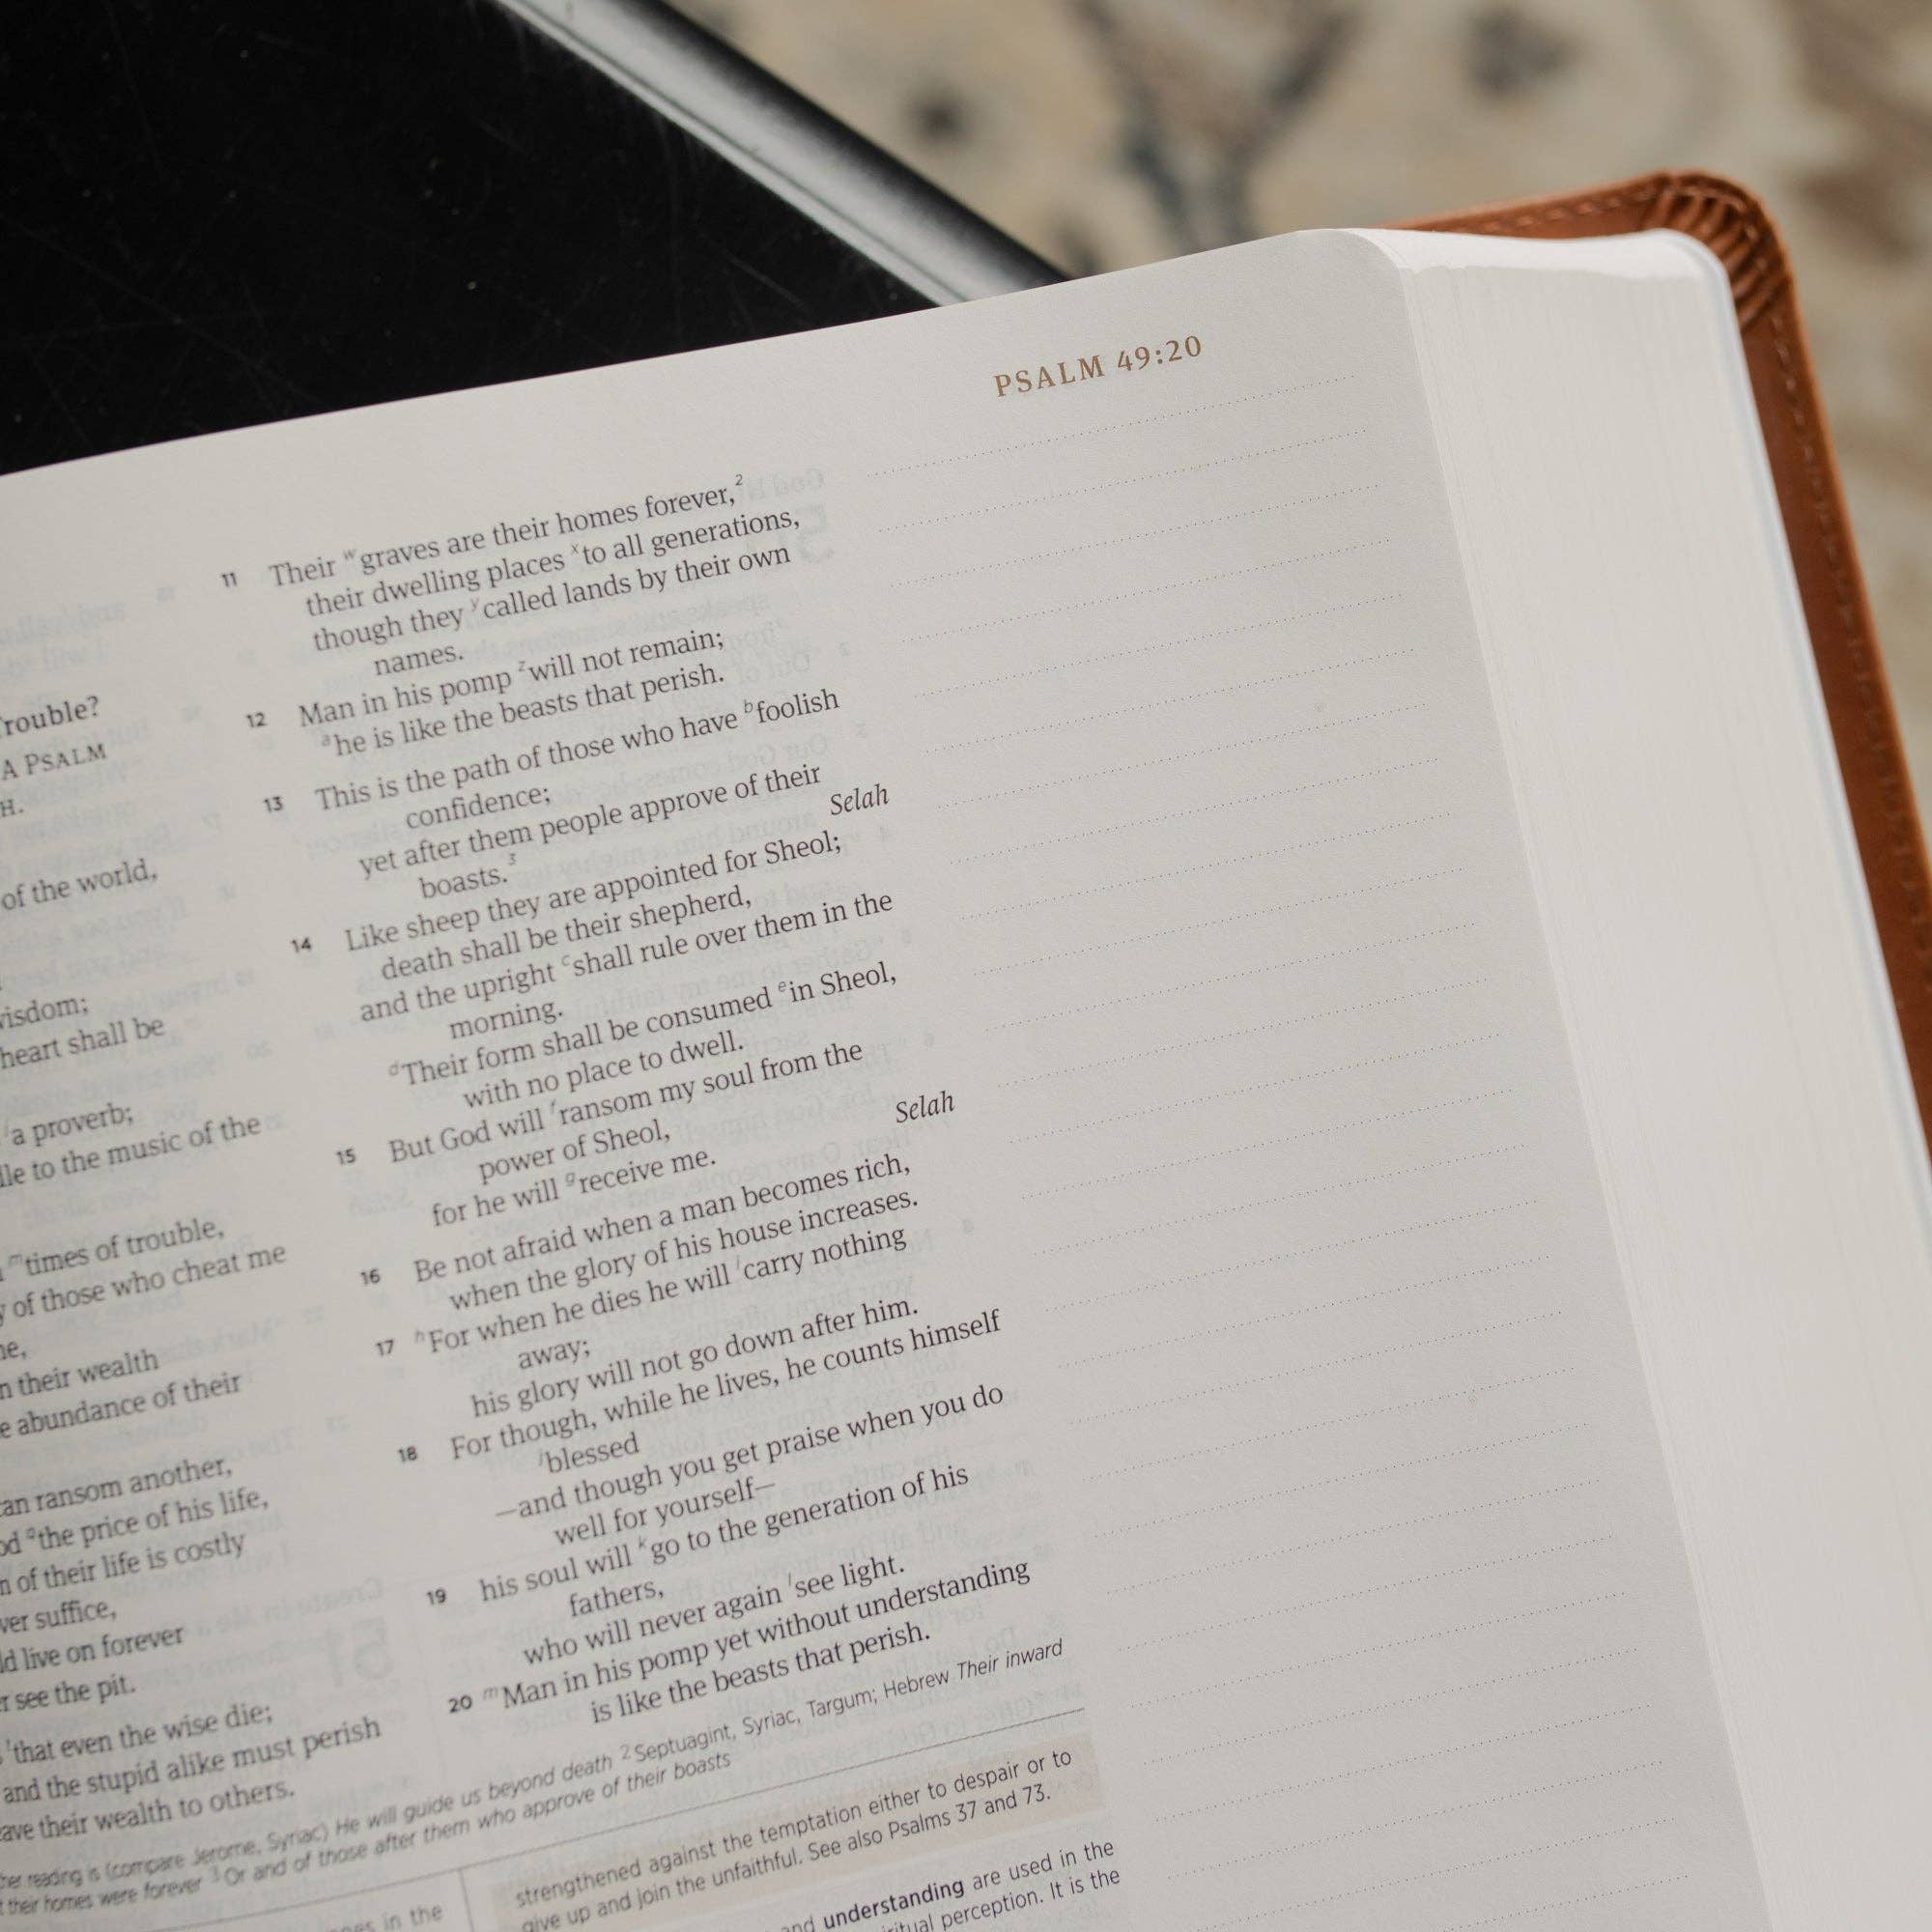 PSALM 49:20
Trouble?
A PSALM
H.
of the world,
wisdom;
heart shall be
a proverb;
to the music of the
m times of trouble,
of those who cheat me
n their wealth
abundance of their
can ransom another,
the price of his life,
of their life is costly
suffice,
live on forever
see the pit.
that even the wise die;
and the stupid alike must perish
their wealth to others.
11 Their w graves are their homes forever,2
their dwelling places x to all generations,
though they y called lands by their own
names.
12 Man in his pomp z will not remain;
a he is like the beasts that perish.
13 This is the path of those who have b foolish
confidence;
yet after them people approve of their
boasts.3 Selah
14 Like sheep they are appointed for Sheol;
death shall be their shepherd,
and the upright c shall rule over them in the
morning.
d Their form shall be consumed e in Sheol,
with no place to dwell.
15 But God will f ransom my soul from the
power of Sheol,
for he will g receive me. Selah
16 Be not afraid when a man becomes rich,
when the glory of his house increases.
17 h For when he dies he will i carry nothing
away;
his glory will not go down after him.
18 For though, while he lives, he counts himself
j blessed
—and though you get praise when you do
well for yourself—
19 his soul will k go to the generation of his
fathers,
who will never again l see light.
20 m Man in his pomp yet without understanding
is like the beasts that perish.
reading is (compare Jerome, Syriac) He will guide us beyond death 2 Septuagint, Syriac, Targum; Hebrew Their inward
their homes were forever 3 Or and of those after them who approve of their boasts
in the
strengthened against the temptation either to despair or to
give up and join the unfaithful. See also Psalms 37 and 73.
and understanding are used in the
perception. It is the